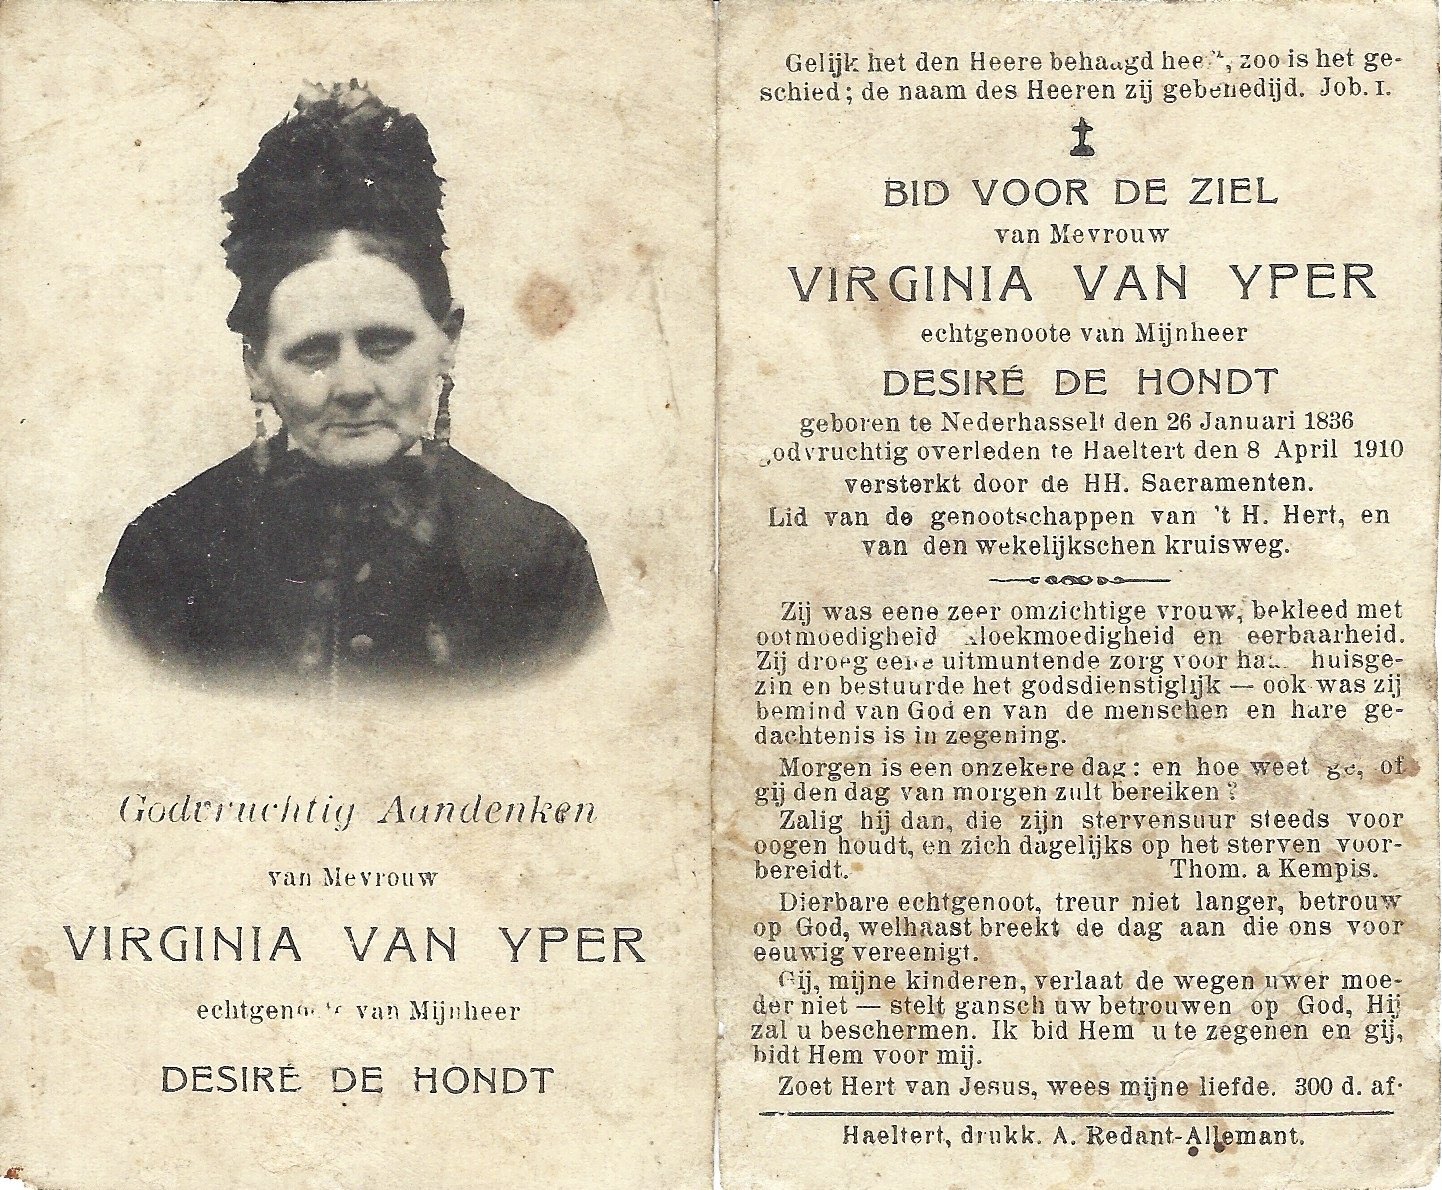 Godvruchtig Aandenken
van Mevrouw
VIRGINIA VAN YPER
echtgenoote van Mijnheer
DESIRÉ DE HONDT
Gelijk het den Heere behaagd heeft, zoo is het ge-
schied; de naam des Heeren zij gebenedijd. Job. I.
BID VOOR DE ZIEL
van Mevrouw
VIRGINIA VAN YPER
echtgenoote van Mijnheer
DESIRÉ DE HONDT
geboren te Nederhasselt den 26 Januari 1836
godvruchtig overleden te Haeltert den 8 April 1910
versterkt door de HH. Sacramenten.
Lid van de genootschappen van 't H. Hert, en
van den wekelijkschen kruisweg.
Zij was eene zeer omzichtige vrouw, bekleed met
ootmoedigheid kloekmoedigheid en eerbaarheid.
Zij droeg eene uitmuntende zorg voor haar huisge-
zin en bestuurde het godsdienstiglijk — ook was zij
bemind van God en van de menschen en hare ge-
dachtenis is in zegening.
Morgen is een onzekere dag: en hoe weet ge, of
gij den dag van morgen zult bereiken?
Zalig hij dan, die zijn stervensuur steeds voor
oogen houdt, en zich dagelijks op het sterven voor-
bereidt. Thom. a Kempis.
Dierbare echtgenoot, treur niet langer, betrouw
op God, welhaast breekt de dag aan die ons voor
eeuwig vereenigt.
Gij, mijne kinderen, verlaat de wegen uwer moe-
der niet — stelt gansch uw betrouwen op God, Hij
zal u beschermen. Ik bid Hem u te zegenen en gij,
bidt Hem voor mij.
Zoet Hert van Jesus, wees mijne liefde. 300 d. af.
Haeltert, drukk. A. Redant-Allemant.